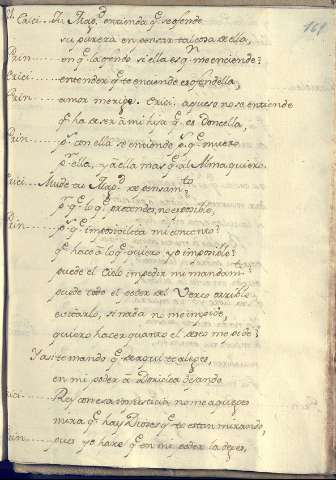 Erici.. Tu Mag.d entienda q.e se ofende
su pureza en pensar tal cosa de ella,
Prin.... en q.e la ofendo si ella es q.n me enciende?
Erici... entender q.e te enciende es ofendella,
Prin.... amor me rige. Erici. aqueso no se entiende
q.e ha de ser a mi hija q.e es Doncella,
Prin.... p.s con ella se entiende p.s q.e muero
p.r ella, y a ella mas q.e al Alma quiero.
Erici.. Mude tu Mag.d de pensam.to
p.s q.e lo q.e pretende, no es posible,
Prin.... p.s q.e imposibilita mi contento?
q.e hace a lo q.e quiero yo imposible?
puede el Cielo impedir mi mandam.to
puede todo el poder del Verco terrible
estorvarlo, si nada no me impide,
quiero hacer quanto el deseo me pide?
Y asi te mando q.e de aqui te alejes,
en mi poder a Doriclea dejando
Erici... Rey con esa injusticia, no me aquejes
mira q.e hay Dioses q.e te estan mirando,
Prin.... pues yo hare q.e en mi poder la dejes,